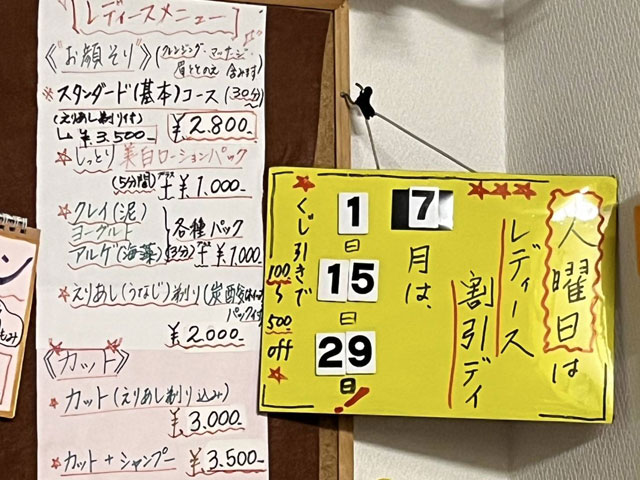 レディースメニュー
《お顔そり》(クレンジング・マッサージ
眉ととのえ 含みます)
※スタンダード(基本)コース(30分)
(えりあし剃り付)
↳¥3.500- ¥2.800-
★しっとり美白ローションパック
(5分間)プラス ¥1.000-
★クレイ(泥)
ヨーグルト
アルゲ(海藻)
各種パック
(3分)プラス ¥1.000
★えりあし(うなじ)剃り(炭酸
パック付)
¥2.000-
《カット》
★カット(えりあし剃り込み)
¥3.000-
★カット+シャンプー
¥3.500-
火曜日は
レディース
割引デイ
7月は、
1日
15日
29日!!
くじ引きで
100〜500off